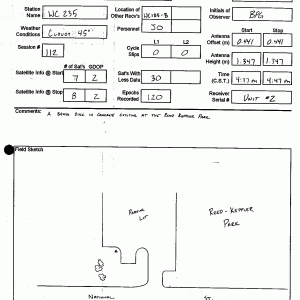 Station Name WC 235 Location of Other Recv'rs WC185-B Initials of Observer BPG
Weather Conditions CLOUDY 45° Personnel JO Start Stop
Antenna Offset (m) 0.441 0.441
L1 L2
Session # 112 Cycle Slips 0 0 Antenna Height (m) 1.347 1.347
# of Sat's GDOP
Satellite Info @ Start 7 2 Sat's With Less Data 30 Time (C.S.T.) 4:17 PM 4:47 PM
Satellite Info @ Stop 8 2 Epochs Recorded 120 Receiver Serial # UNIT #2
Comments: A DISC IN CONCRETE EXISTING AT THE REED KEPPLER PARK.
Field Sketch
PARKING LOT
REED-KEPPLER PARK
NATIONAL ST.